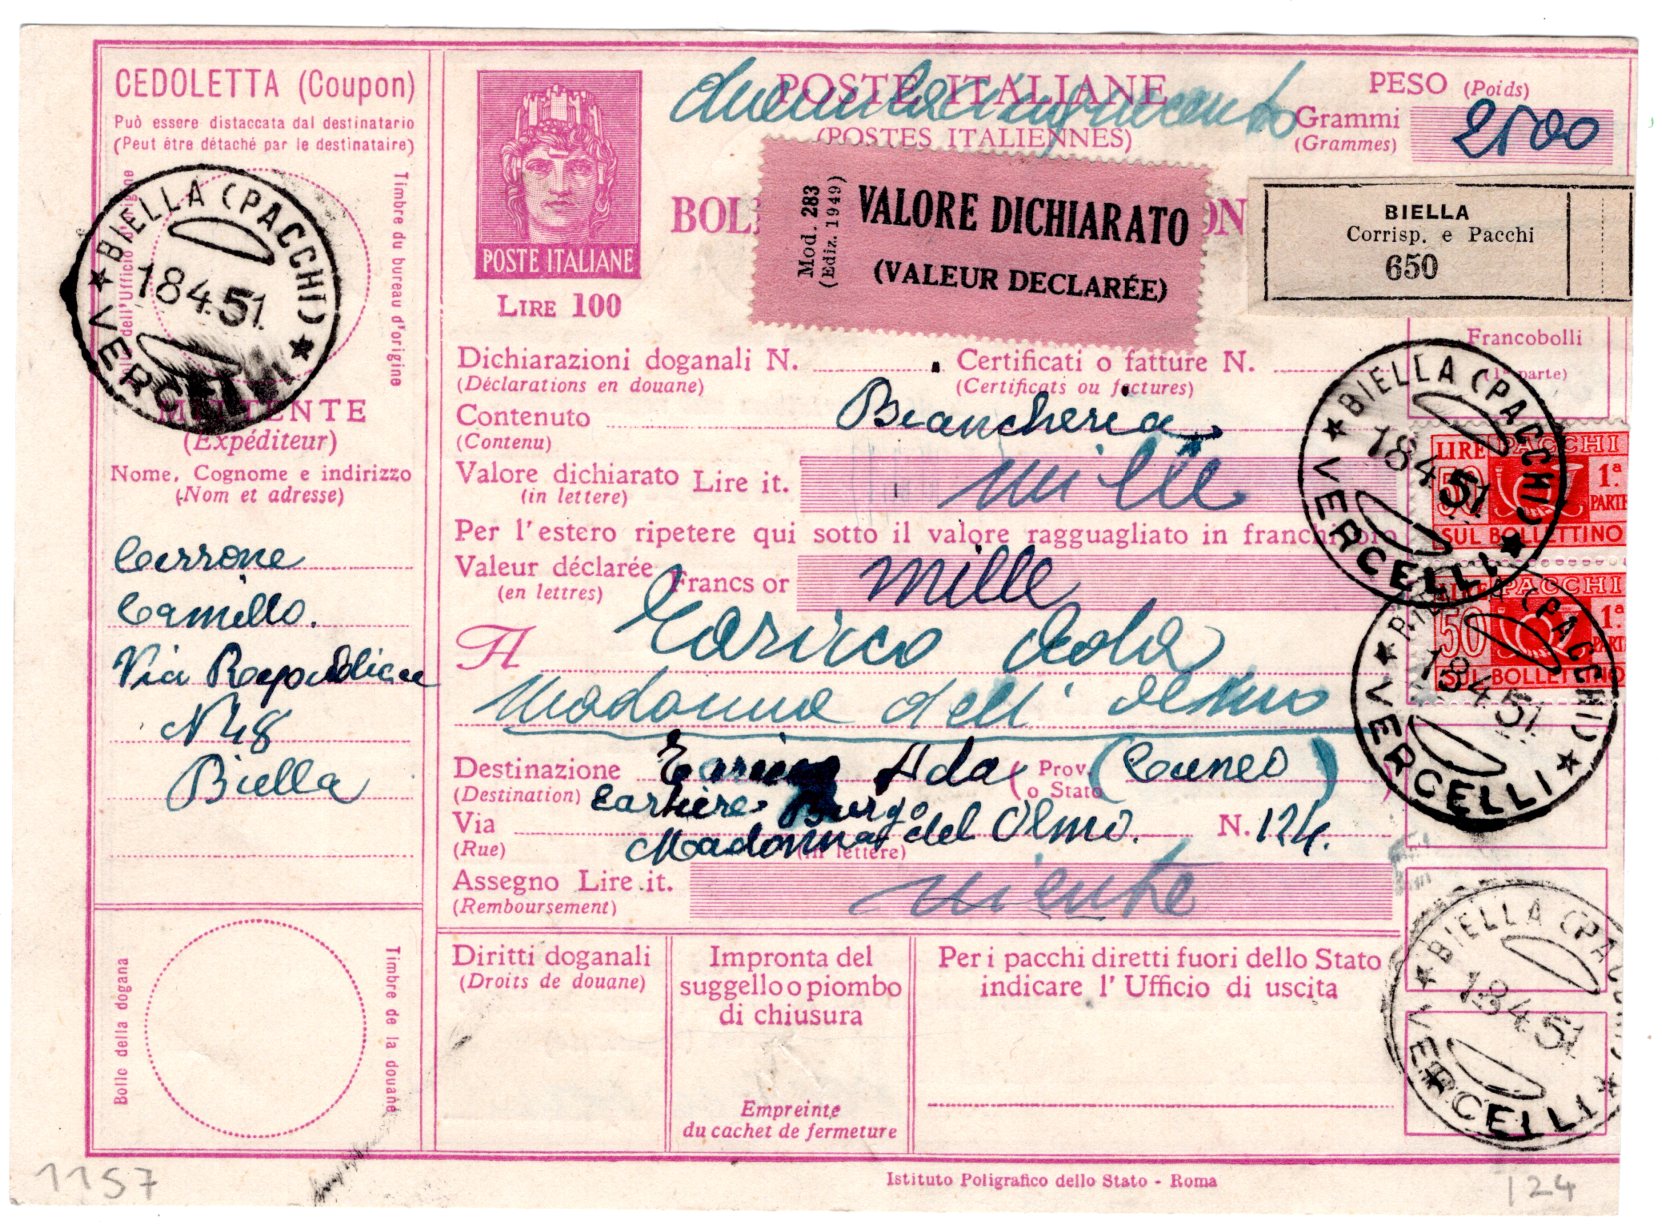 CEDOLETTA (Coupon)
Può essere distaccata dal destinatario
(Peut être détaché par le destinataire)
Timbre du bureau d'origine
dell'Ufficio d'origine
BIELLA (PACCHI)
18.4.51.
VERCELLI
MITTENTE
(Expéditeur)
Nome, Cognome e indirizzo
(Nom et adresse)
Cerrone
Camillo.
Via Repubblica
N 48
Biella
Bollo della dogana
Timbre de la douane
POSTE ITALIANE
LIRE 100
POSTE ITALIANE
(POSTES ITALIENNES)
duemilacinquecento
PESO (Poids)
Grammi
(Grammes)
2500
BOL
ON
Mod. 283
(Ediz. 1949)
VALORE DICHIARATO
(VALEUR DECLARÉE)
BIELLA
Corrisp. e Pacchi
650
Francobolli
(1ª parte)
Dichiarazioni doganali N.
(Déclarations en douane)
Certificati o fatture N.
(Certificats ou factures)
Contenuto
(Contenu)
Biancheria
Valore dichiarato
(in lettere)
Lire it.
mille
Per l'estero ripetere qui sotto il valore ragguagliato in franchi oro
Valeur déclarée
(en lettres)
Francs or
mille
A
Enrico Ada
Madonna dell'Olmo
Destinazione
(Destination)
Enrico Ada
(Prov.
o Stato
(Cuneo)
Cartiere Burgo
Via
(Rue)
Madonna del Olmo.
N. 124.
(in lettere)
Assegno Lire it.
(Remboursement)
niente
LIRE PACCHI
50
1ª
PARTE
SUL BOLLETTINO
BIELLA (PACCHI)
18.4.51.
VERCELLI
LIRE PACCHI
50
1ª
PARTE
SUL BOLLETTINO
BIELLA (PACCHI)
18.4.51.
VERCELLI
BIELLA (PACCHI)
18.4.51
VERCELLI
Diritti doganali
(Droits de douane)
Impronta del
suggello o piombo
di chiusura
Empreinte
du cachet de fermeture
Per i pacchi diretti fuori dello Stato
indicare l'Ufficio di uscita
Istituto Poligrafico dello Stato - Roma
1157
124